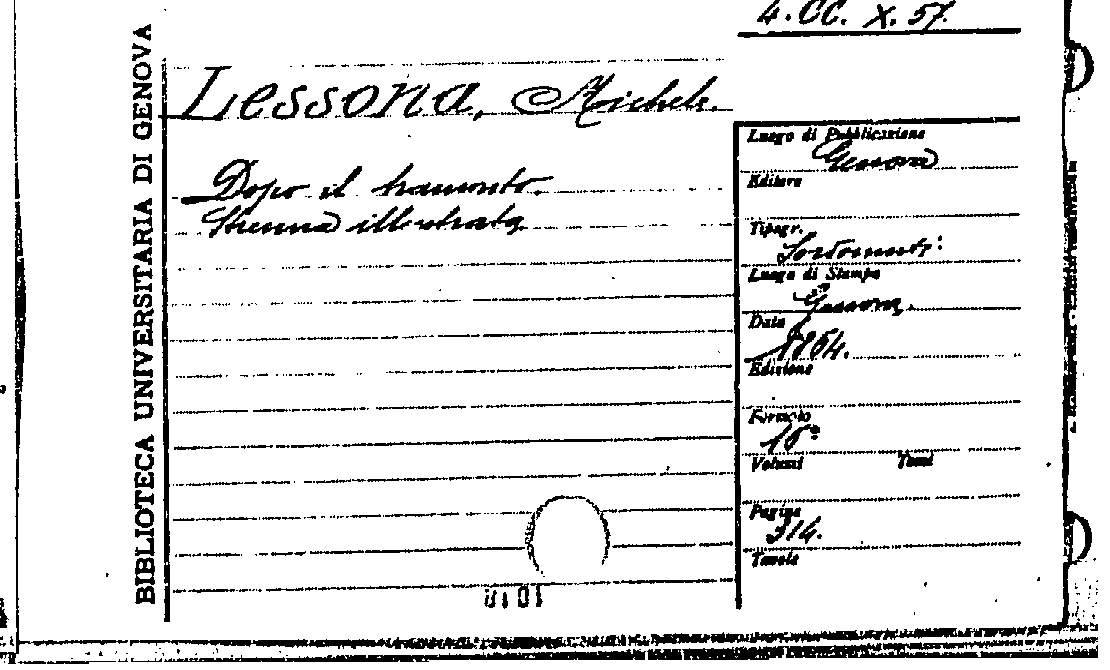 4. CC. X. 57.
BIBLIOTECA UNIVERSITARIA DI GENOVA
Lessona, Michele.
Dopo il tramonto.
Strenna illustrata
Luogo di Pubblicazione
Genova
Editore
Tipogr.
Sordomuti:
Luogo di Stampa
Genova.
Data
1864.
Edizione
Formato
16°
Volumi Tomi
Pagine
314.
Tavole